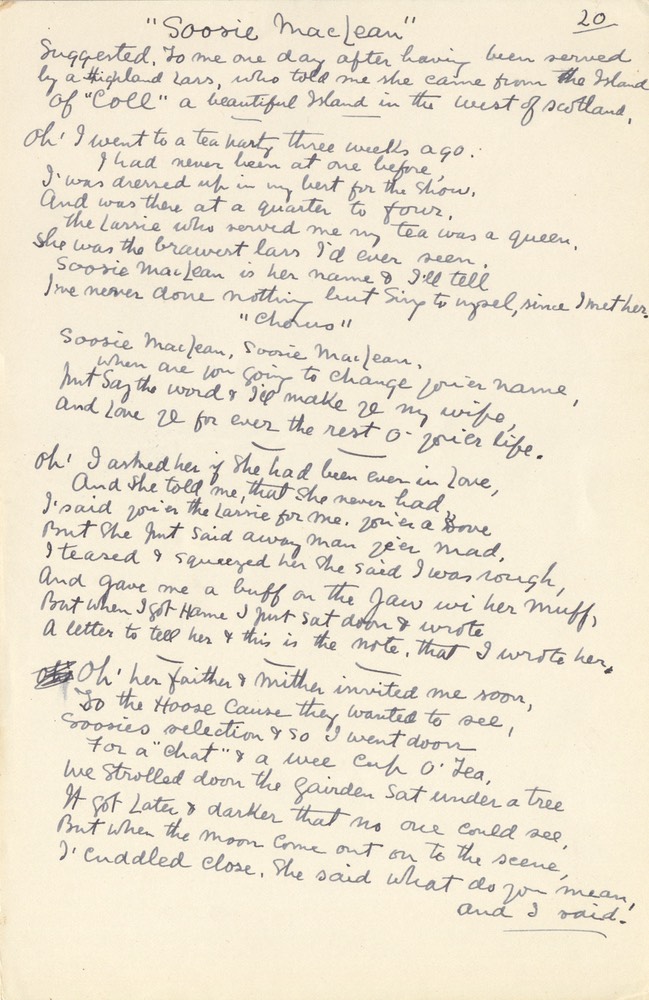 "Soosie MacLean"
20
Suggested. To me one day after having been served
by a Highland Lass, who told me she came from the Island
of "Coll" a beautiful Island in the west of scotland.
Oh! I went to a tea party three weeks ago.
I had never been at one before,
I was dressed up in my best for the show.
And was there at a quarter to four.
the Lassie who served me my tea was a queen.
She was the brawest lass I'd ever seen.
Soosie MacLean is her name & I'll tell
I've never done nothing but Sing to mysel, since I met her.
"Chorus"
Soosie MacLean, Soosie MacLean.
when are you going to change yoier name,
Just Say the word & I'll make ye my wife,
And Love ye for ever the rest O' yoier life.
Oh! I asked her if She had been ever in Love,
And She told me, that She never had,
I said yoi'er the Lassie for me. yoi'er a Dove
But She Just said away man ye'er mad,
I teased & squeezed her She said I was rough,
And gave me a buff on the Jaw wi her muff,
But when I got Hame I Just sat doon & wrote
A letter to tell her & this is the note. that I wrote her.
Oh! her faither & mither invited me soon,
To the Hoose Cause they wanted to see,
Soosies selection & so I went doon
For a "chat" & a wee Cup O' Tea,
We Strolled doon the gairden Sat under a tree
It got Later & darker that no one could see,
But when the moon Come out on to the scene,
I cuddled close. She said what do you mean,
and I said.